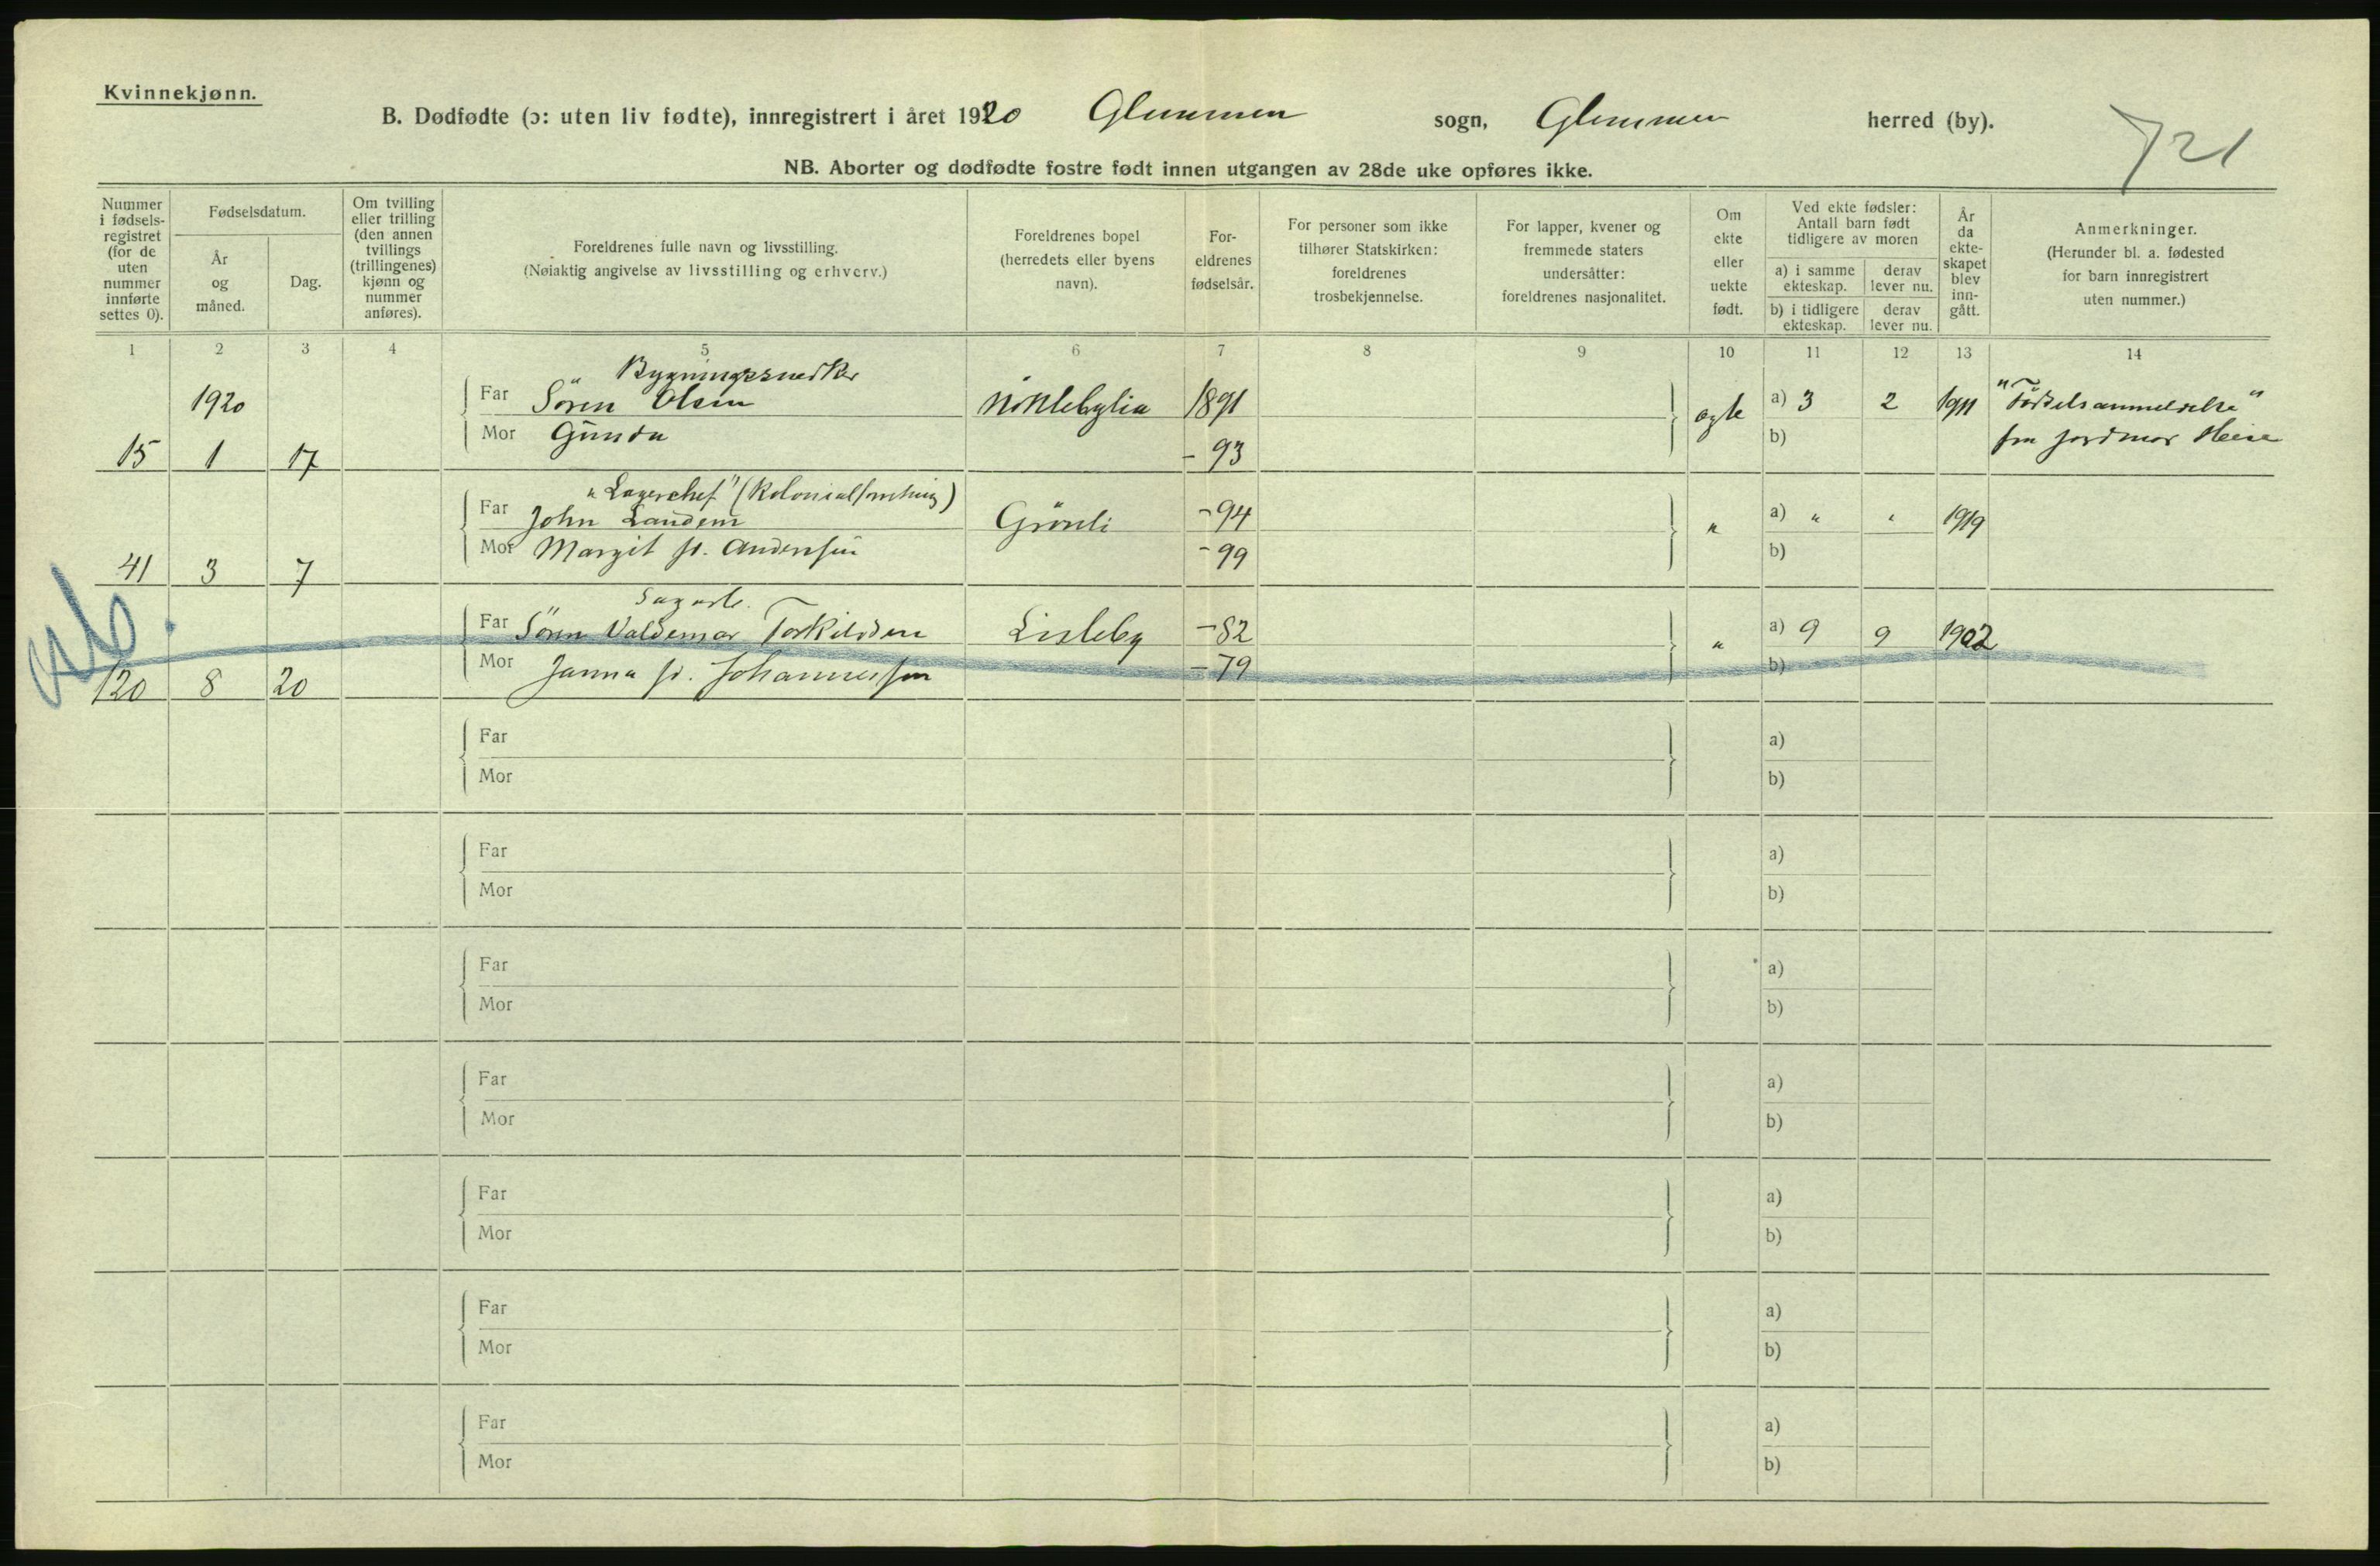 Kvinnekjønn.
B. Dødfødte (ɔ: uten liv fødte), innregistrert i året 1920 Glemmen sogn, Glemmen herred (by).
721
NB. Aborter og dødfødte fostre født innen utgangen av 28de uke opføres ikke.
Nummer i fødsels- registret (for de uten nummer innførte settes 0).
Fødselsdatum.
År og måned.
Dag.
Om tvilling eller trilling (den annen tvillings (trillingenes) kjønn og nummer anføres).
Foreldrenes fulle navn og livsstilling.
(Nøiaktig angivelse av livsstilling og erhverv.)
Foreldrenes bopel (herredets eller byens navn).
For- eldrenes fødselsår.
For personer som ikke tilhører Statskirken: foreldrenes trosbekjennelse.
For lapper, kvener og fremmede staters undersåtter: foreldrenes nasjonalitet.
Om ekte eller uekte født.
Ved ekte fødsler: Antall barn født tidligere av moren
a) i samme ekteskap.
derav lever nu.
b) i tidligere ekteskap.
derav lever nu.
År da ekte- skapet blev inn- gått.
Anmerkninger.
(Herunder bl. a. fødested for barn innregistrert uten nummer.)
1 2 3 4 5 6 7 8 9 10 11 12 13 14
Bygningssnedker
1920 Far Sören Olsen 1891 ægte a) 3 2 1911 "Födselsanmeldelse"
Mor Gunda b) fra jordmor
15 1 17 - 93
"Lagerchef" (Kolonialforretning)
Far John Landem Grönli - 94 " a) " " 1919
Mor Margit f. Andersen - 99 b)
41 3 7
Sagarb.
Far Sören Valdemar Torkildsen Lisleby - 82 " a) 9 9 1902
Mor Janna f. Johannessen - 79 b)
120 8 20
Far a)
Mor b)
Far a)
Mor b)
Far a)
Mor b)
Far a)
Mor b)
Far a)
Mor b)
Far a)
Mor b)
Far a)
Mor b)